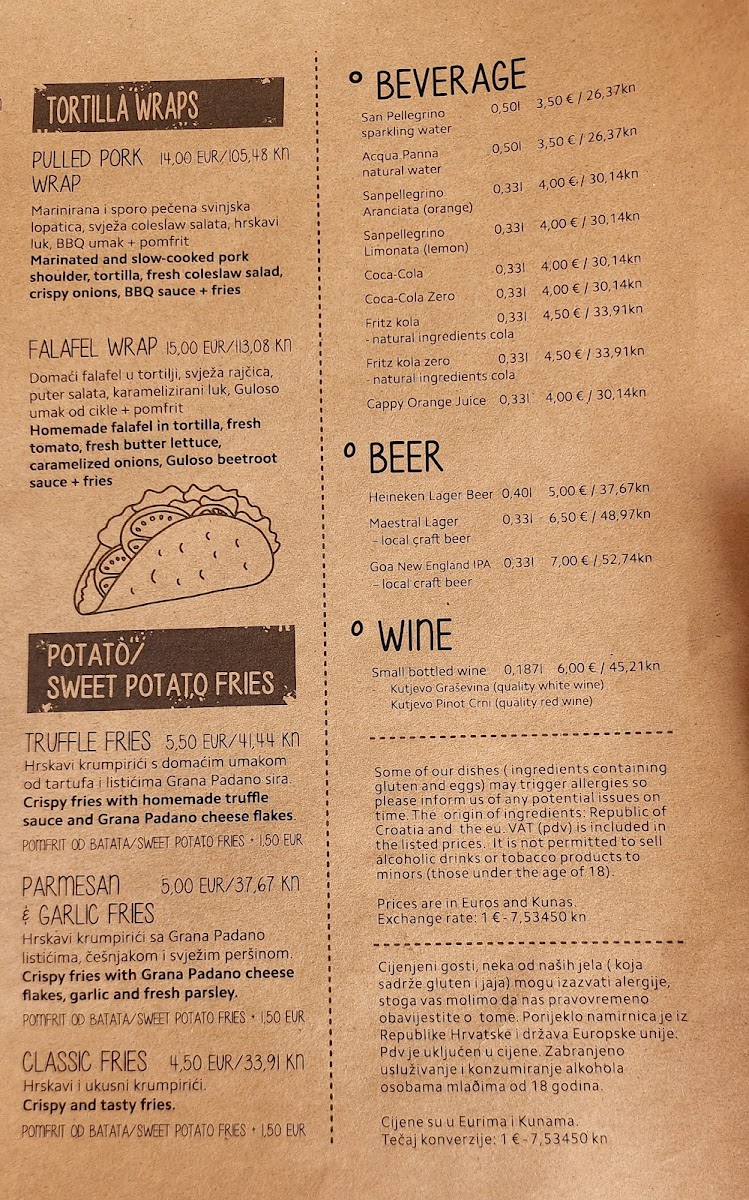 TORTILLA WRAPS
PULLED PORK 14,00 EUR/105,48 Kn
WRAP
Marinirana i sporo pečena svinjska
lopatica, svježa coleslaw salata, hrskavi
luk, BBQ umak + pomfrit
Marinated and slow-cooked pork
shoulder, tortilla, fresh coleslaw salad,
crispy onions, BBQ sauce + fries
FALAFEL WRAP 15,00 EUR/113,08 Kn
Domaći falafel u tortilji, svježa rajčica,
puter salata, karamelizirani luk, Guloso
umak od cikle + pomfrit
Homemade falafel in tortilla, fresh
tomato, fresh butter lettuce,
caramelized onions, Guloso beetroot
sauce + fries
POTATO/
SWEET POTATO FRIES
TRUFFLE FRIES 5,50 EUR/41,44 Kn
Hrskavi krumpirići s domaćim umakom
od tartufa i listićima Grana Padano sira.
Crispy fries with homemade truffle
sauce and Grana Padano cheese flakes.
POMFRIT OD BATATA/SWEET POTATO FRIES + 1,50 EUR
PARMESAN 5,00 EUR/37,67 Kn
& GARLIC FRIES
Hrskavi krumpirići sa Grana Padano
listićima, češnjakom i svježim peršinom.
Crispy fries with Grana Padano cheese
flakes, garlic and fresh parsley.
POMFRIT OD BATATA/SWEET POTATO FRIES + 1,50 EUR
CLASSIC FRIES 4,50 EUR/33,91 Kn
Hrskavi i ukusni krumpirići.
Crispy and tasty fries.
POMFRIT OD BATATA/SWEET POTATO FRIES + 1,50 EUR
° BEVERAGE
San Pellegrino 0,50l 3,50 € / 26,37kn
sparkling water
Acqua Panna 0,50l 3,50 € / 26,37kn
natural water
Sanpellegrino 0,33l 4,00 € / 30,14kn
Aranciata (orange)
Sanpellegrino 0,33l 4,00 € / 30,14kn
Limonata (lemon)
Coca-Cola 0,33l 4,00 € / 30,14kn
Coca-Cola Zero 0,33l 4,00 € / 30,14kn
Fritz kola 0,33l 4,50 € / 33,91kn
- natural ingredients cola
Fritz kola zero 0,33l 4,50 € / 33,91kn
- natural ingredients cola
Cappy Orange Juice 0,33l 4,00 € / 30,14kn
° BEER
Heineken Lager Beer 0,40l 5,00 € / 37,67kn
Maestral Lager 0,33l 6,50 € / 48,97kn
– local craft beer
Goa New England IPA 0,33l 7,00 € / 52,74kn
– local craft beer
° WINE
Small bottled wine 0,187l 6,00 € / 45,21kn
- Kutjevo Graševina (quality white wine)
Kutjevo Pinot Crni (quality red wine)
Some of our dishes ( ingredients containing
gluten and eggs) may trigger allergies so
please inform us of any potential issues on
time. The origin of ingredients: Republic of
Croatia and the eu. VAT (pdv) is included in
the listed prices. It is not permitted to sell
alcoholic drinks or tobacco products to
minors (those under the age of 18).
Prices are in Euros and Kunas.
Exchange rate: 1 € - 7,53450 kn
Cijenjeni gosti, neka od naših jela ( koja
sadrže gluten i jaja) mogu izazvati alergije,
stoga vas molimo da nas pravovremeno
obavijestite o tome. Porijeklo namirnica je iz
Republike Hrvatske i država Europske unije.
Pdv je uključen u cijene. Zabranjeno
usluživanje i konzumiranje alkohola
osobama mlađima od 18 godina.
Cijene su u Eurima i Kunama.
Tečaj konverzije: 1 € - 7,53450 kn